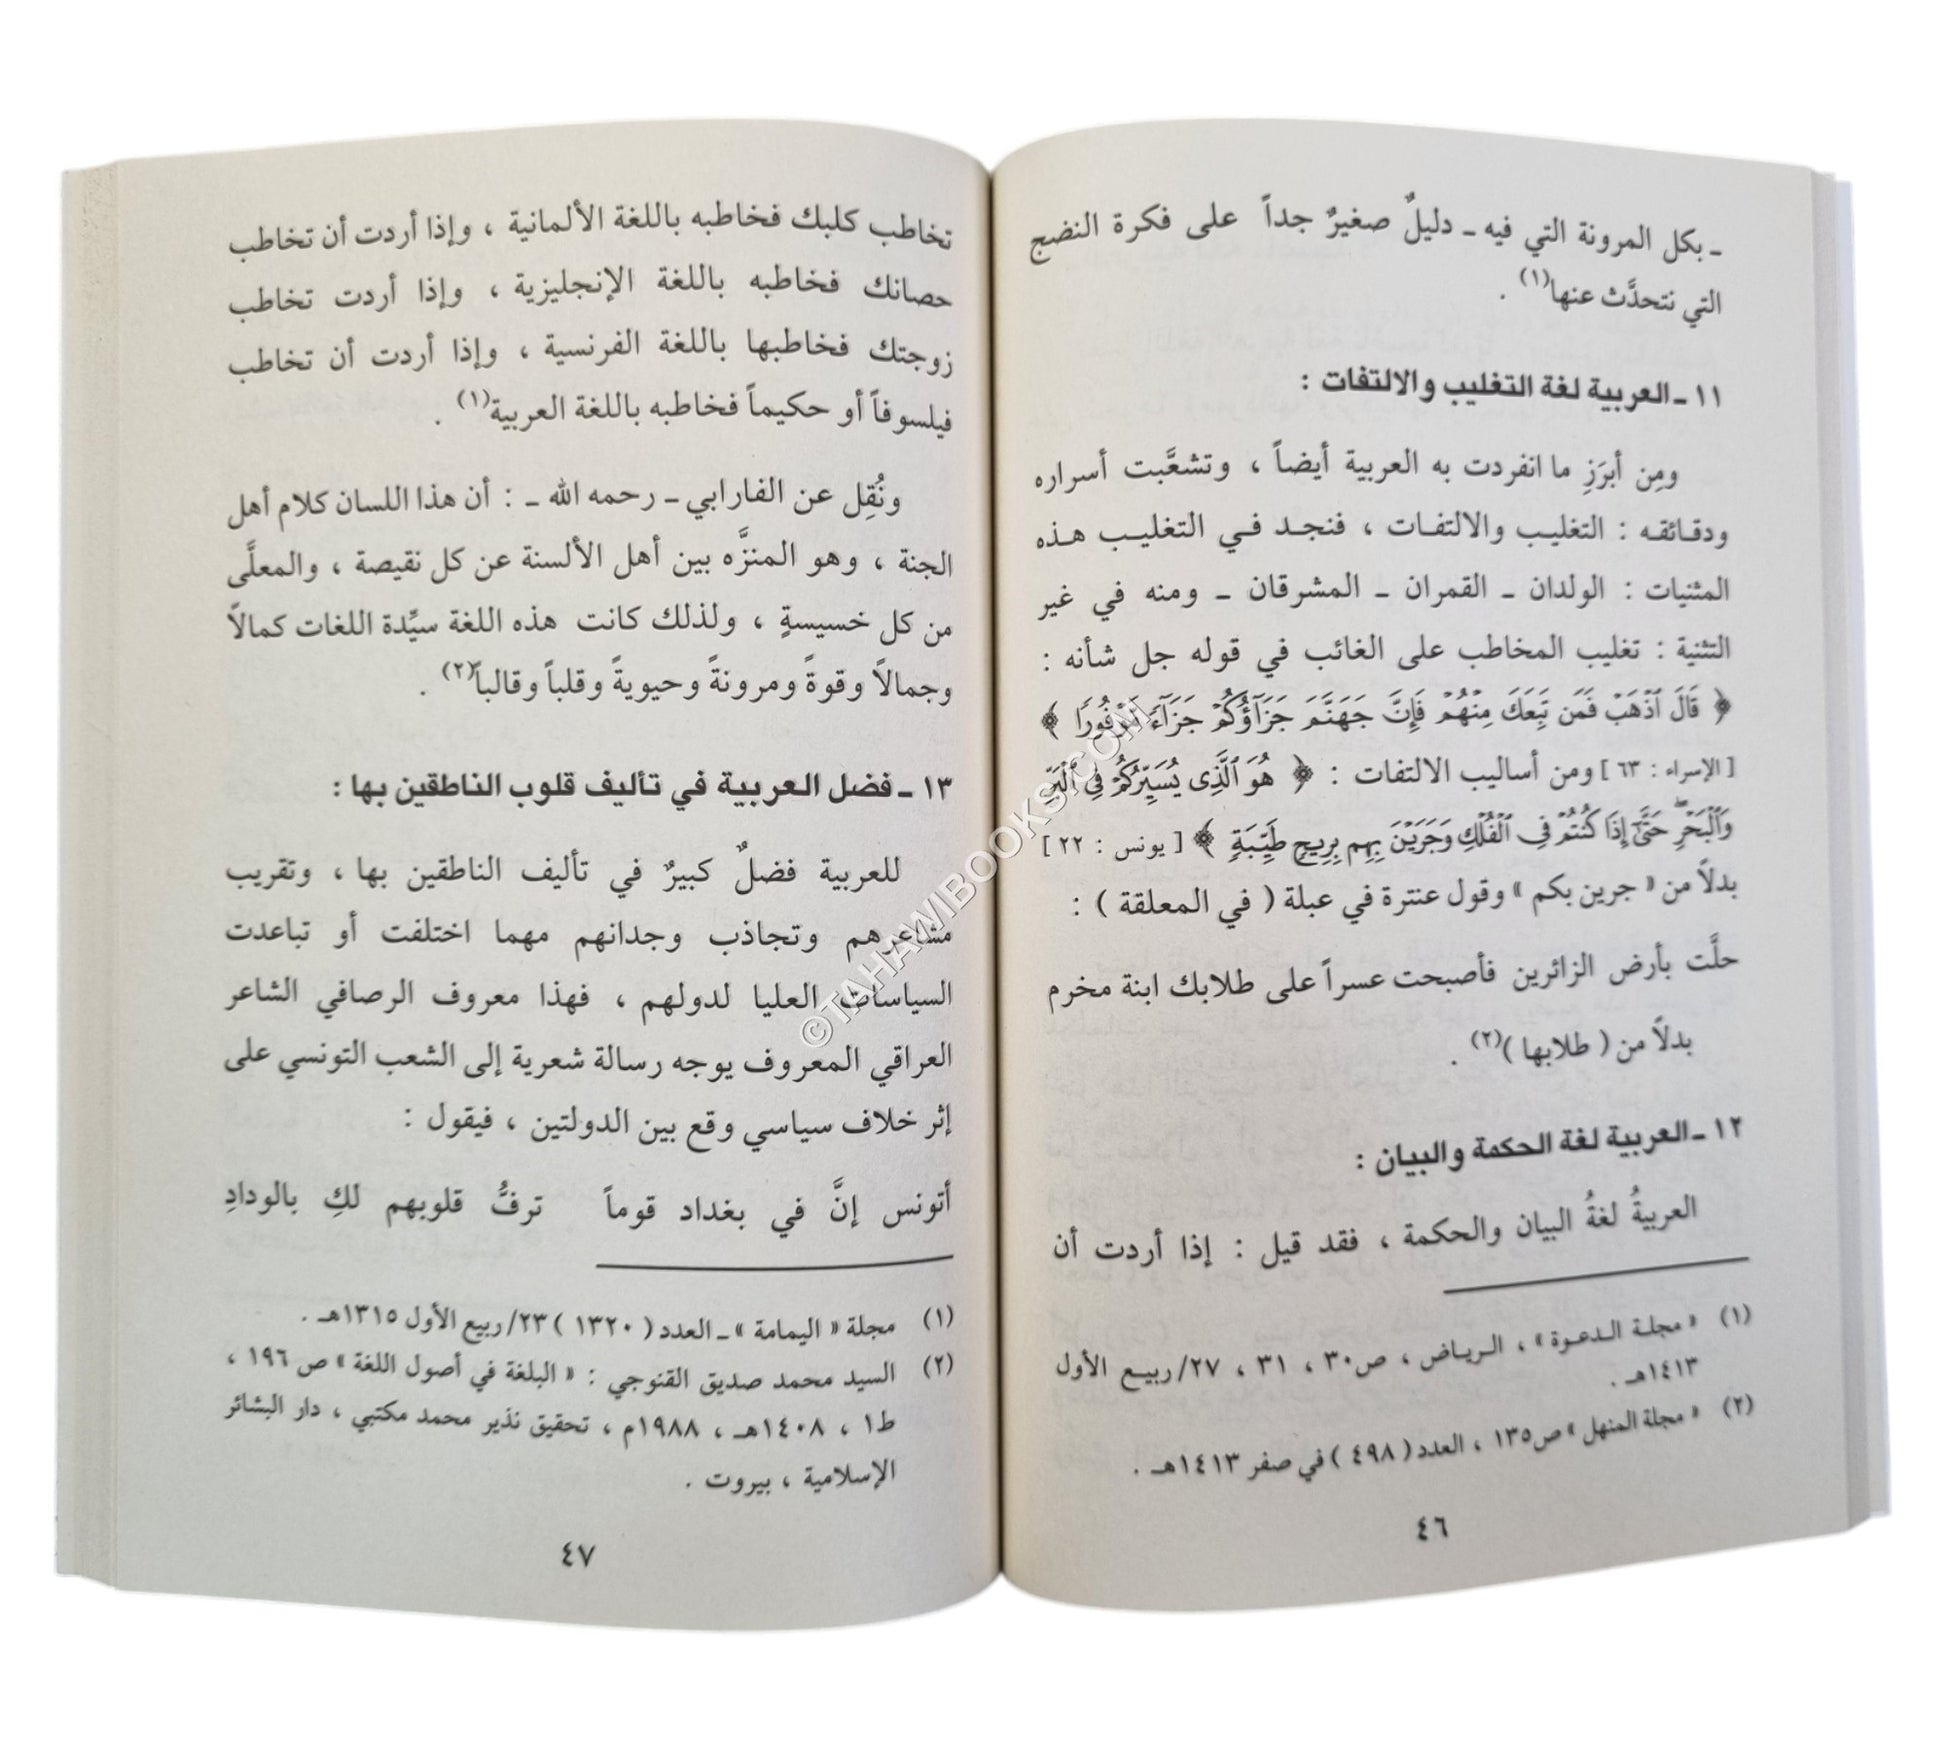 ـ بكل المرونة التي فيه ـ دليلٌ صغيرٌ جداً على فكرة النضج
التي نتحدَّث عنها(١) .
١١ ـ العربية لغة التغليب والالتفات :
ومِن أبرَزِ ما انفردت به العربية أيضاً ، وتشعَّبت أسراره
ودقائقه : التغليب والالتفات ، فنجد في التغليب هذه
المثنيات : الولدان ـ القمران ـ المشرقان ـ ومنه في غير
التثنية : تغليب المخاطب على الغائب في قوله جل شأنه :
﴿ قَالَ ٱذْهَبْ فَمَن تَبِعَكَ مِنْهُمْ فَإِنَّ جَهَنَّمَ جَزَآؤُكُمْ جَزَآءً مَّوْفُورًا ﴾
[ الإسراء : ٦٣ ] ومن أساليب الالتفات : ﴿ هُوَ ٱلَّذِى يُسَيِّرُكُمْ فِى ٱلْبَرِّ
وَٱلْبَحْرِ حَتَّىٰٓ إِذَا كُنتُمْ فِى ٱلْفُلْكِ وَجَرَيْنَ بِهِم بِرِيحٍ طَيِّبَةٍ ﴾ [ يونس : ٢٢ ]
بدلاً من « جرين بكم » وقول عنترة في عبلة ( في المعلقة ) :
حلَّت بأرض الزائرين فأصبحت عسراً على طلابك ابنة مخرم
بدلاً من ( طلابها )(٢) .
١٢ ـ العربية لغة الحكمة والبيان :
العربيةُ لغةُ البيان والحكمة ، فقد قيل : إذا أردت أن
(١) « مجلة الدعوة » ، الرياض ، ص٣٠ ، ٣١ ، ٢٧/ ربيع الأول
١٤١٣هـ .
(٢) « مجلة المنهل » ص١٣٥ ، العدد ( ٤٩٨ ) في صفر ١٤١٣هـ .
٤٦
تخاطب كلبك فخاطبه باللغة الألمانية ، وإذا أردت أن تخاطب
حصانك فخاطبه باللغة الإنجليزية ، وإذا أردت تخاطب
زوجتك فخاطبها باللغة الفرنسية ، وإذا أردت أن تخاطب
فيلسوفاً أو حكيماً فخاطبه باللغة العربية(١) .
ونُقِل عن الفارابي ـ رحمه الله ـ : أن هذا اللسان كلام أهل
الجنة ، وهو المنزَّه بين أهل الألسنة عن كل نقيصة ، والمعلَّى
من كل خسيسةٍ ، ولذلك كانت هذه اللغة سيِّدة اللغات كمالاً
وجمالاً وقوةً ومرونةً وحيويةً وقلباً وقالباً(٢) .
١٣ ـ فضل العربية في تأليف قلوب الناطقين بها :
للعربية فضلٌ كبيرٌ في تأليف الناطقين بها ، وتقريب
مشاعرهم وتجاذب وجدانهم مهما اختلفت أو تباعدت
السياسات العليا لدولهم ، فهذا معروف الرصافي الشاعر
العراقي المعروف يوجه رسالة شعرية إلى الشعب التونسي على
إثر خلاف سياسي وقع بين الدولتين ، فيقول :
أتونس إنَّ في بغداد قوماً ترفُّ قلوبهم لكِ بالودادِ
(١) مجلة « اليمامة » ـ العدد ( ١٣٢٠ ) ٢٣/ ربيع الأول ١٣١٥هـ .
(٢) السيد محمد صديق القنوجي : « البلغة في أصول اللغة » ص ١٩٦ ،
ط١ ، ١٤٠٨هـ ، ١٩٨٨م ، تحقيق نذير محمد مكتبي ، دار البشائر
الإسلامية ، بيروت .
٤٧
©TAHAWIBOOKS.COM